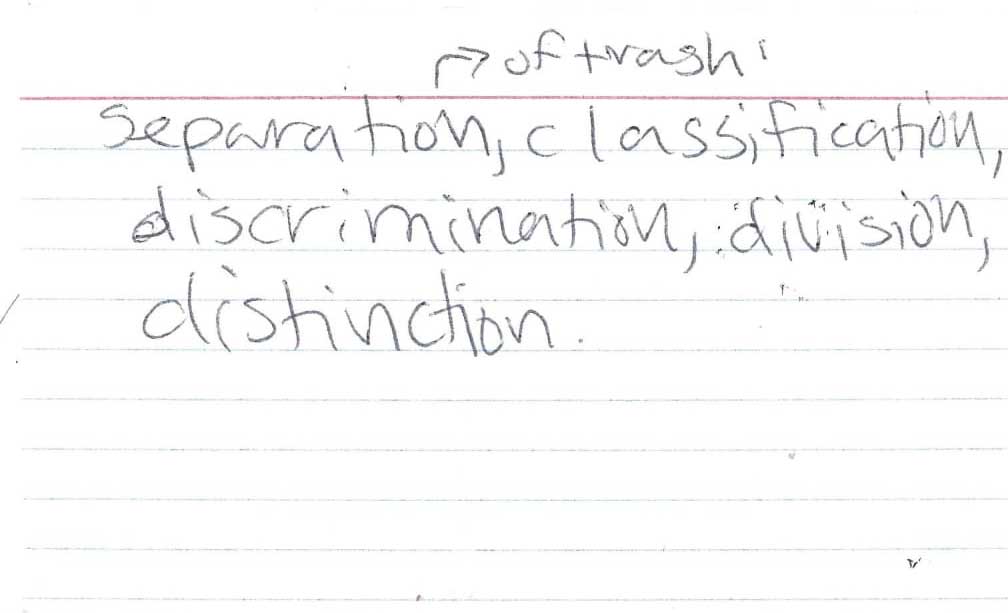 ↱ of trash
Separation, classification,
discrimination, division,
distinction.